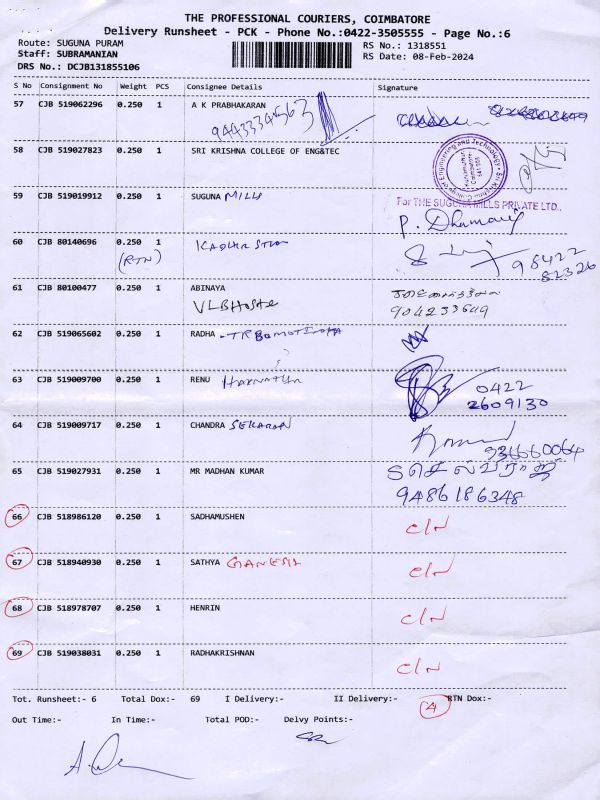 THE PROFESSIONAL COURIERS, COIMBATORE
Delivery Runsheet - PCK - Phone No.:0422-3505555 - Page No.:6
Route: SUGUNA PURAM
RS No.: 1318551
Staff: SUBRAMANIAN
RS Date: 08-Feb-2024
DRS No.: DCJB131855106
S No Consignment No Weight PCS Consignee Details Signature
57 CJB 519062296 0.250 1 A K PRABHAKARAN
58 CJB 519027823 0.250 1 SRI KRISHNA COLLEGE OF ENG&TEC
59 CJB 519019912 0.250 1 SUGUNA MILLS
For THE SUGUNA MILLS PRIVATE LTD.,
60 CJB 80140696 0.250 1
(RTN)
98422
82326
61 CJB 80100477 0.250 1 ABINAYA
VLB Hostel
904233649
62 CJB 519065602 0.250 1 RADHA
63 CJB 519009700 0.250 1 RENU
0422
2609130
64 CJB 519009717 0.250 1 CHANDRA SEKARAN
65 CJB 519027931 0.250 1 MR MADHAN KUMAR
செல்வராஜ்
9486186348
66 CJB 518986120 0.250 1 SADHAMUSHEN C/N
67 CJB 518940930 0.250 1 SATHYA GANESH C/N
68 CJB 518978707 0.250 1 HENRIN C/N
69 CJB 519038031 0.250 1 RADHAKRISHNAN C/N
Tot. Runsheet:- 6 Total Dox:- 69 I Delivery:- II Delivery:- 4 RTN Dox:-
Out Time:- In Time:- Total POD:- Delvy Points:-